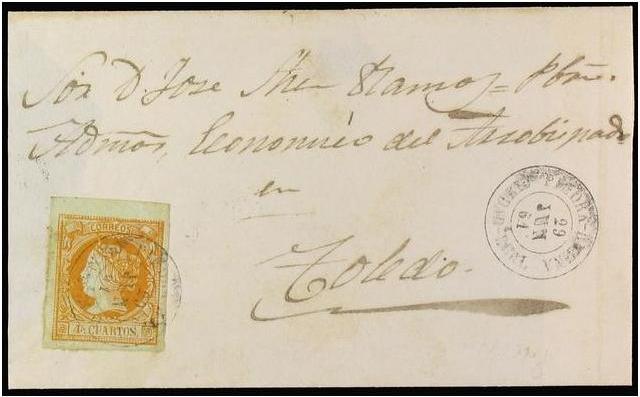 Sor D. Jose
Ramos = Pbro.
Admor, Economico del Arzobispado
en
Toledo.
CORREOS
4 CUARTOS
PIEDRA-BUENA
29
JUN
61